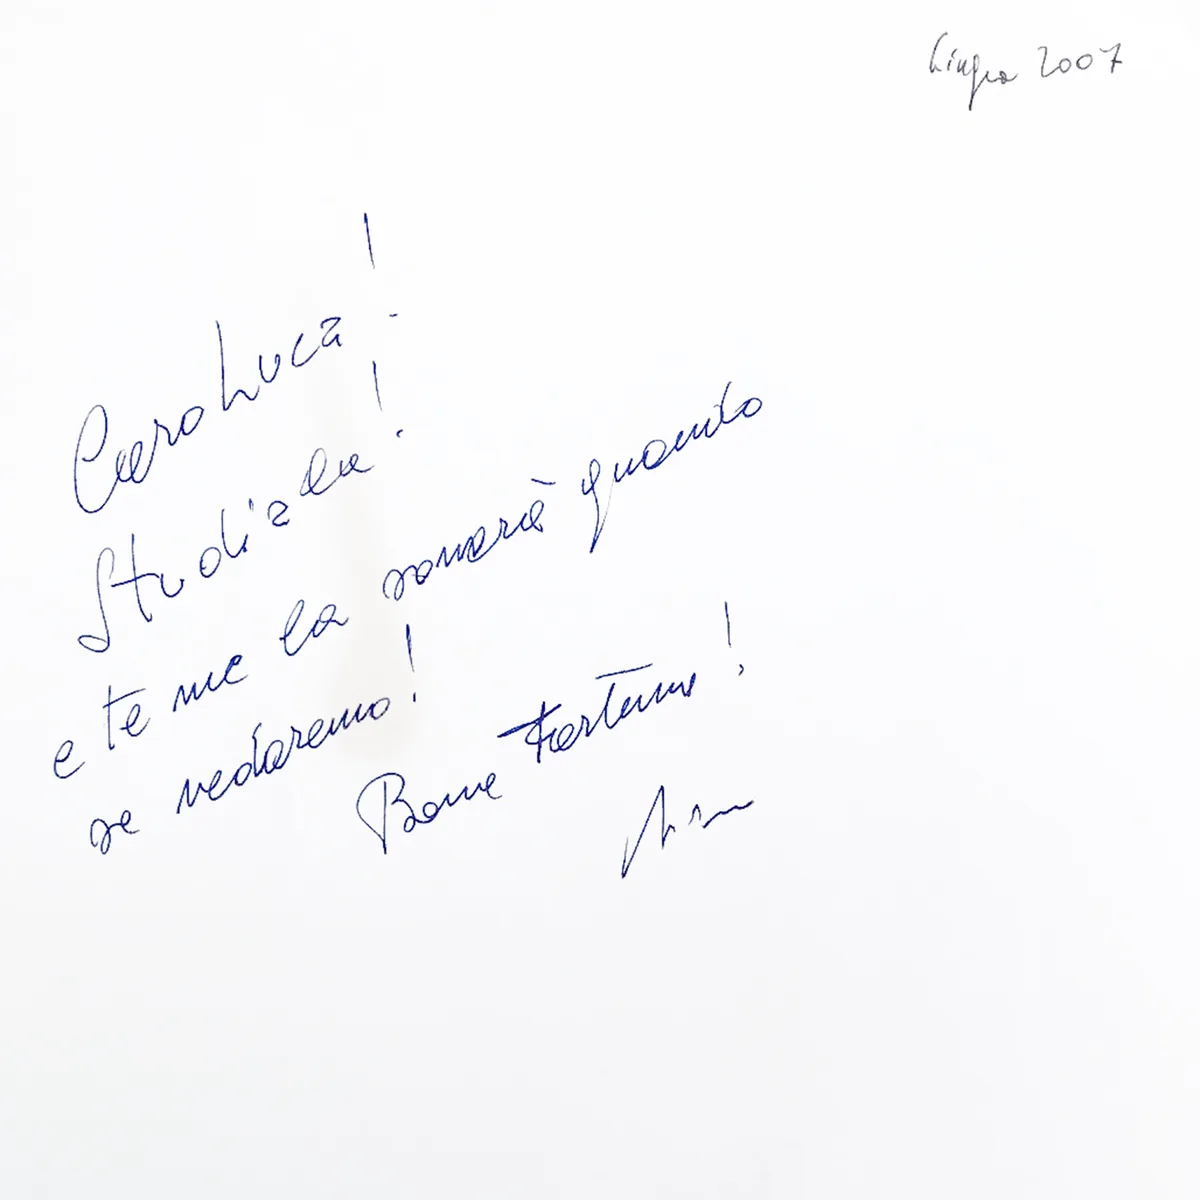 giugno 2007
Caro Luca!
Studiala!
e te me la sonerà quando
se vedaremo!
Bona Fortuna!